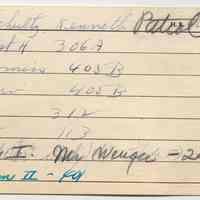 chultz, Kenneth Patrol
st H 306A
omics 405B
405B
312
113
I. Mr Wenger - 2
me II - RH